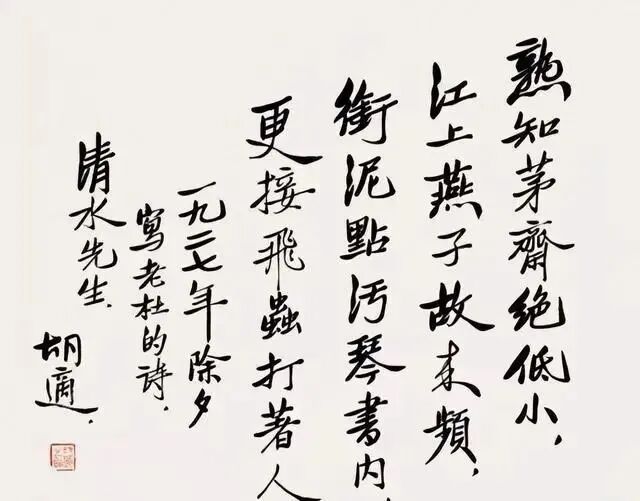 熟知茅齋絕低小，
江上燕子故来頻，
銜泥點污琴書內，
更接飛蟲打著人
一九二七年除夕
寫老杜的詩，
清水先生，
胡適，